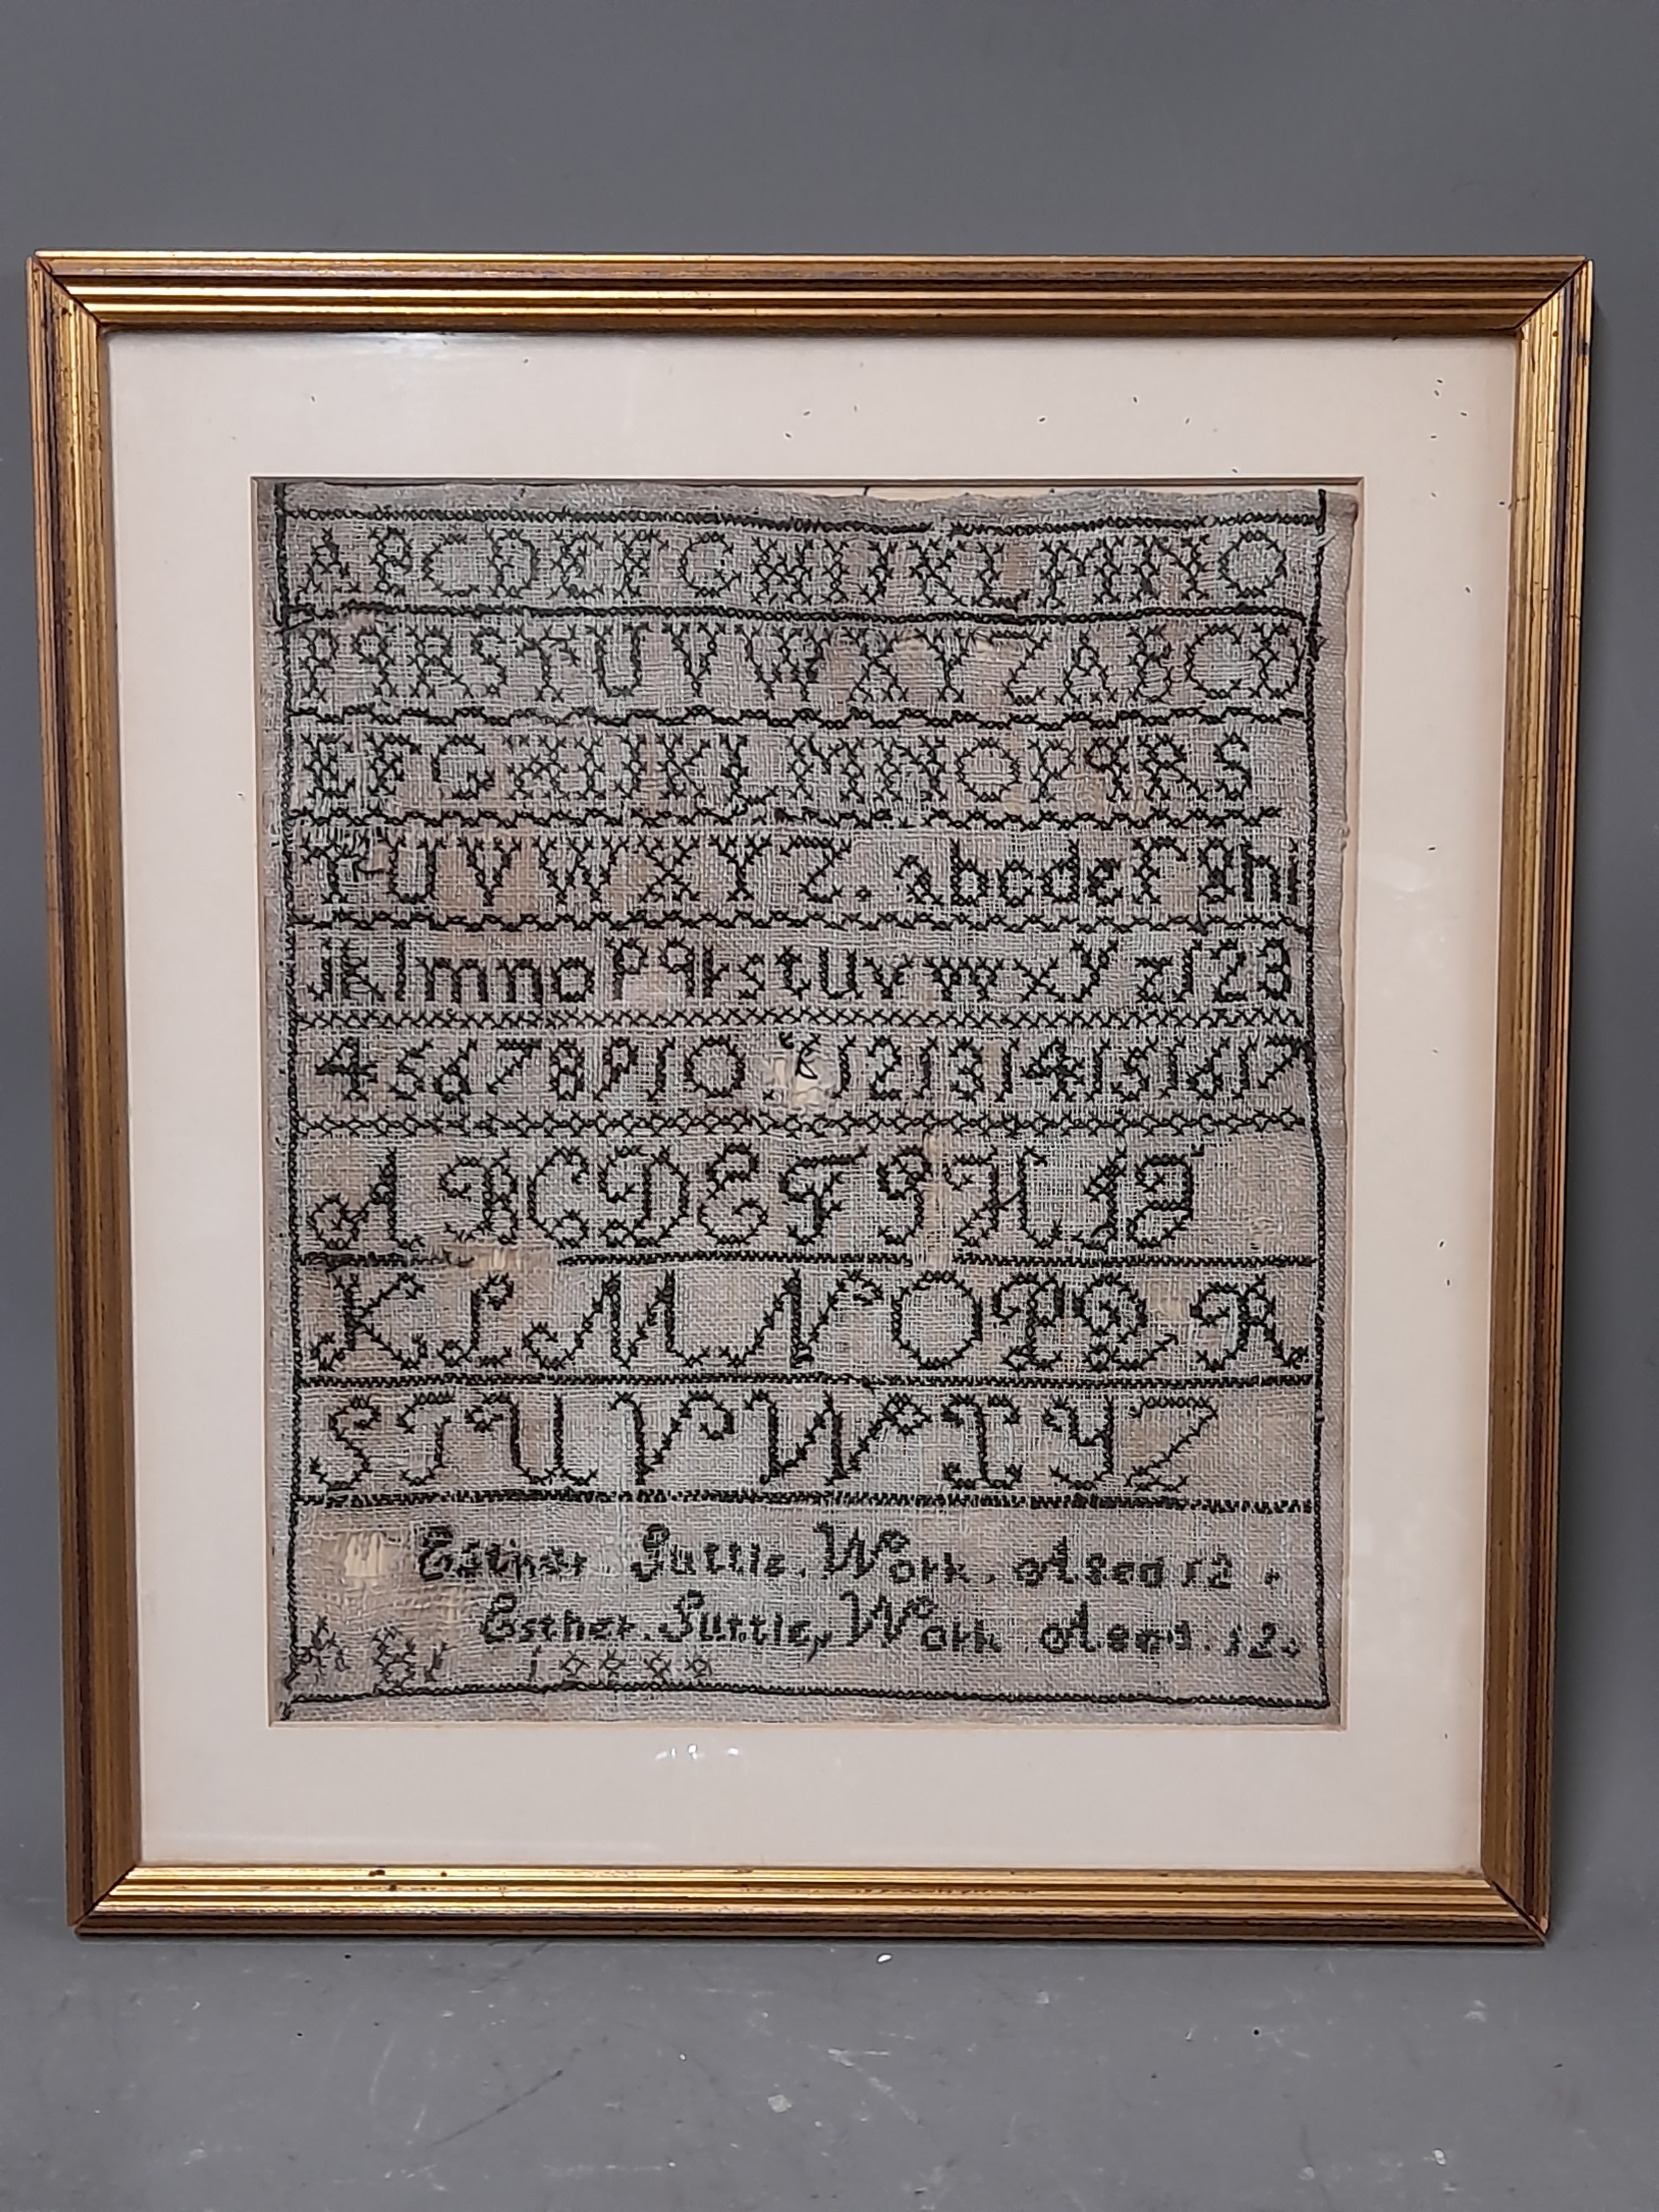 A B C D E F G H I J K L M N O
P Q R S T U V W X Y Z A B C D
E F G H I J K L M N O P Q R S
T U V W X Y Z . a b c d e f g h i
j k l m n o p q r s t u v w x y z 1 2 3
4 5 6 7 8 9 10 12 13 14 15 16 17
A B C D E F G H I J
K L M N O P Q R
S T U V W X Y Z
Esther Suttle. Work. Aged 12.
Esther. Suttle, Work Aged. 12.